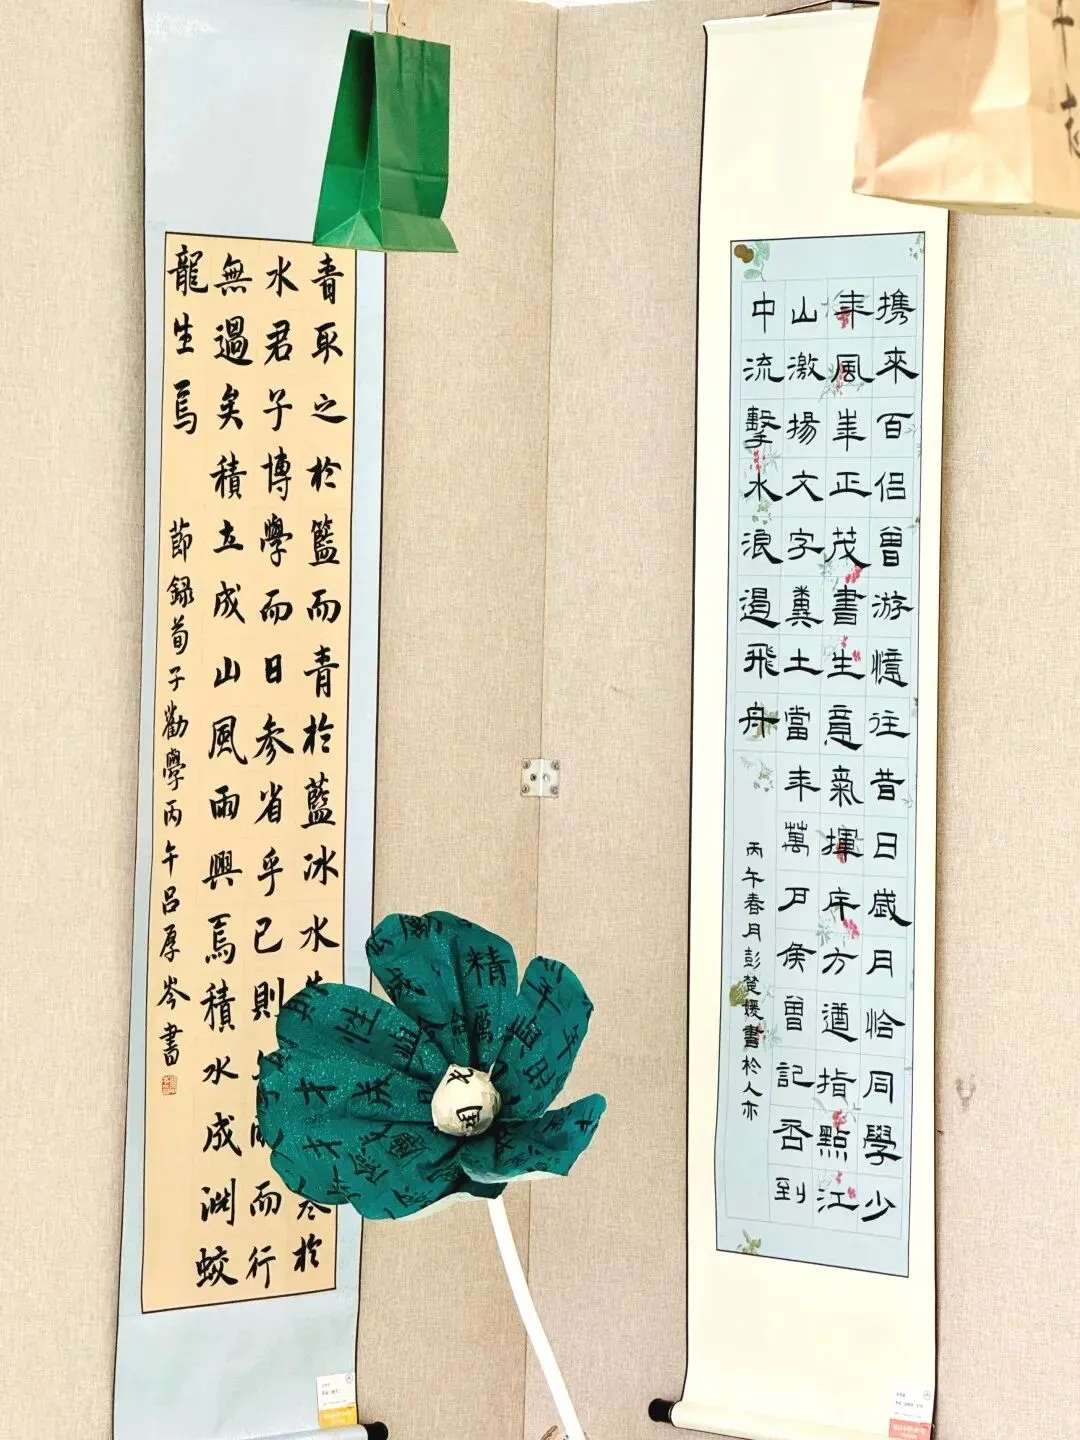 携來百侣曾游憶往昔日歲月恰同學少
年風華正茂書生意氣揮斥方遒指點江
山激揚文字糞土當年萬户侯曾記否到
中流擊水浪遏飛舟
丙午春月彭楚媛書於人亦
青取之於籃而青於藍冰水於
水君子博學而日参省乎己則而行
無過矣積立成山風雨興焉積水成淵蛟
龍生焉
節録荀子勸學丙午吕厚岑書
精